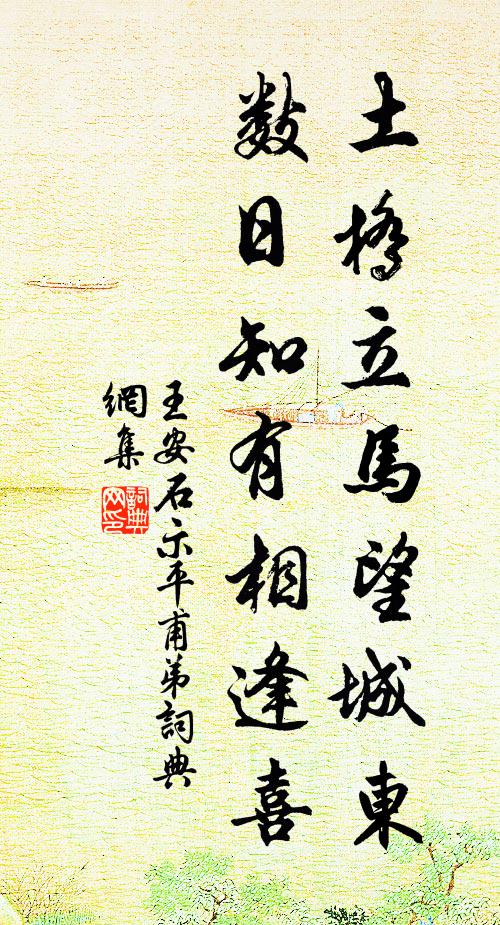 土橋立馬望城東
數日知有相逢喜
王安石示平甫弟詞典
網集
詞典
网印